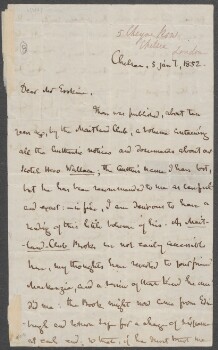 5 Cheyne Row,
Chelsea, London
Chelsea, 5 jany, 1852.
Dear Mr Erskine,
There was published, about ten
years ago, by the Maitland Club, a volume containing
all the authentic notices and documents about our
Scotch Hero Wallace, the Author's name I have lost,
but he has been recommended to me as careful
and exact: in fine, I am desirous to have a
reading of this little volume of his. As Mait-
land-Club Books are not easily accessible
here, my thoughts have reverted to your friend
Mackenzie, and a service of that kind he once
did me: the Book might now come from Edin-
burgh and return safe for a charge of
at each end,